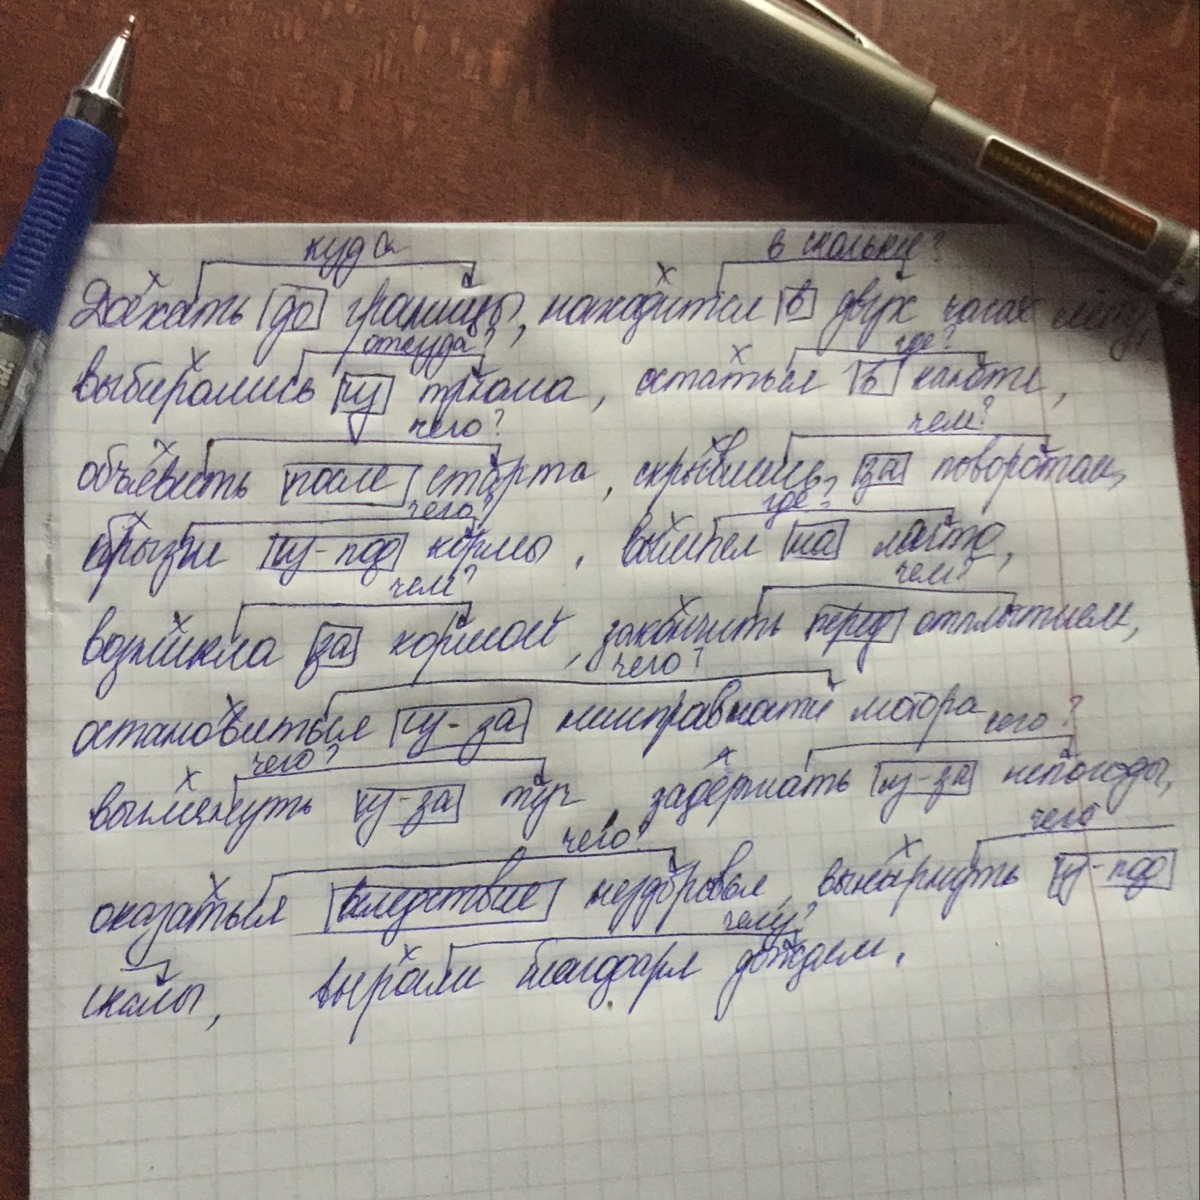 куда в сколько?
Доехать до границы, находится в двух часах лёту,
откуда? где?
выбирались из трюма, остаться в каюте,
чего? чем?
объявить после старта, скрывшись за поворотом,
чего? где?
брызги из-под кормы, вымпел на
чем? чем?
возникла за кормой, закончить перед отплытием,
чего?
остановиться из-за неисправности мотора
чего? чего?
выглянуть из-за туч, задержать из-за непогоды,
чего? чего
оказаться вследствие нездоровья, вынырнуть из-под
чему?
скалы, выросли благодаря дождем.